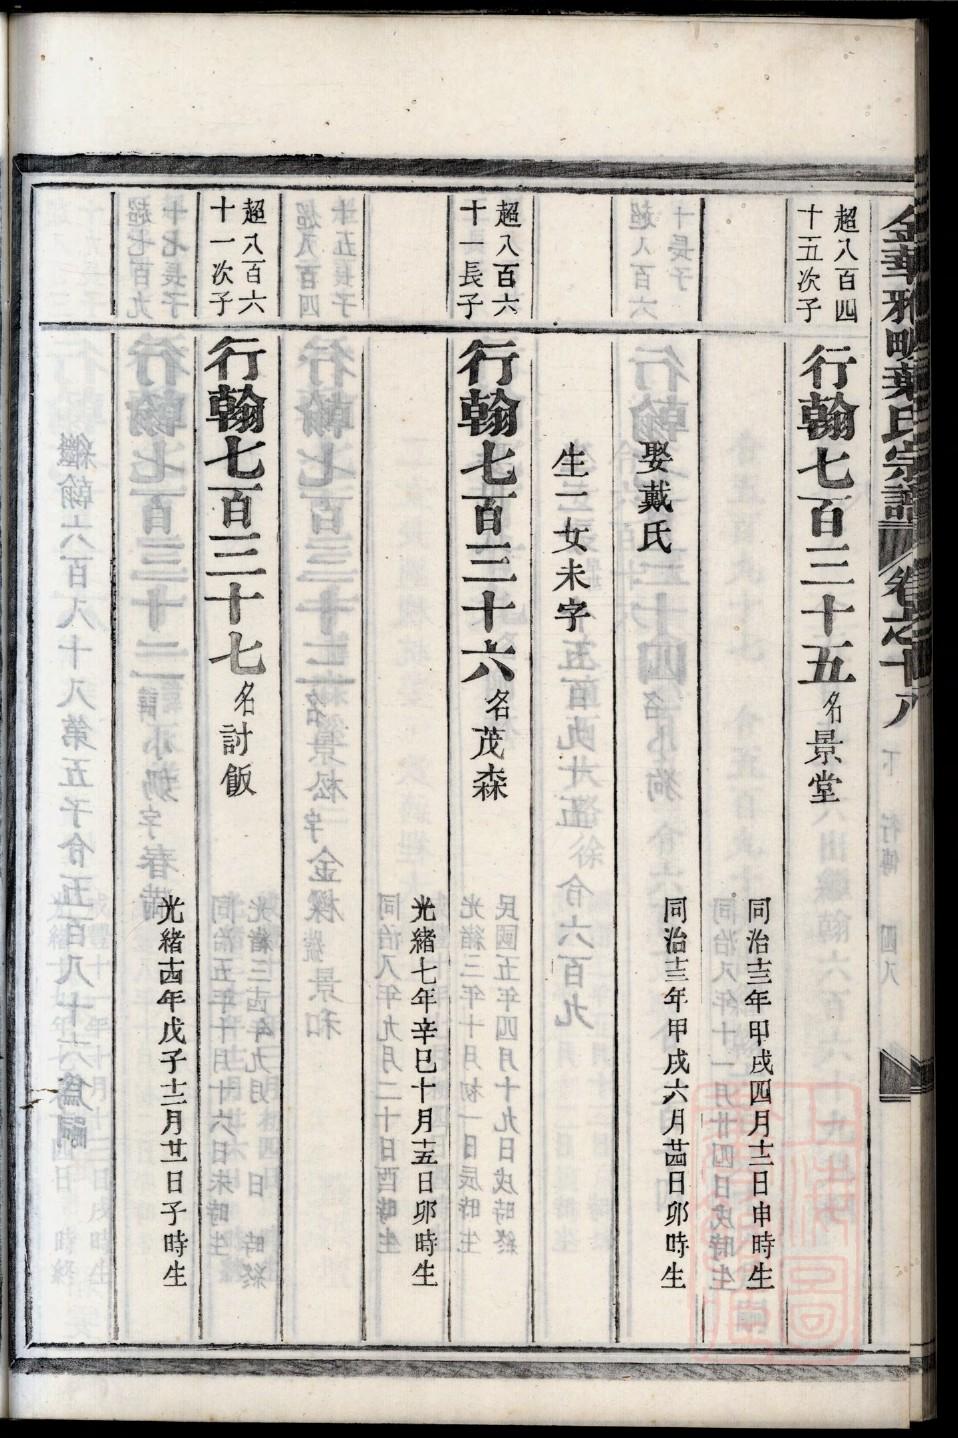 金華雅畈葉氏宗譜 卷之十八 下 行傳 四八
超八百四
十五次子
行翰七百三十五 名景堂
同治十三年甲戌四月十二日申時生
娶戴氏
同治十三年甲戌六月廿四日卯時生
生一女未字
超八百六
十一長子
行翰七百三十六 名茂森
光緒七年辛巳十月十五日卯時生
超八百六
十一次子
行翰七百三十七 名討飯
光緒十四年戊子十二月廿一日子時生